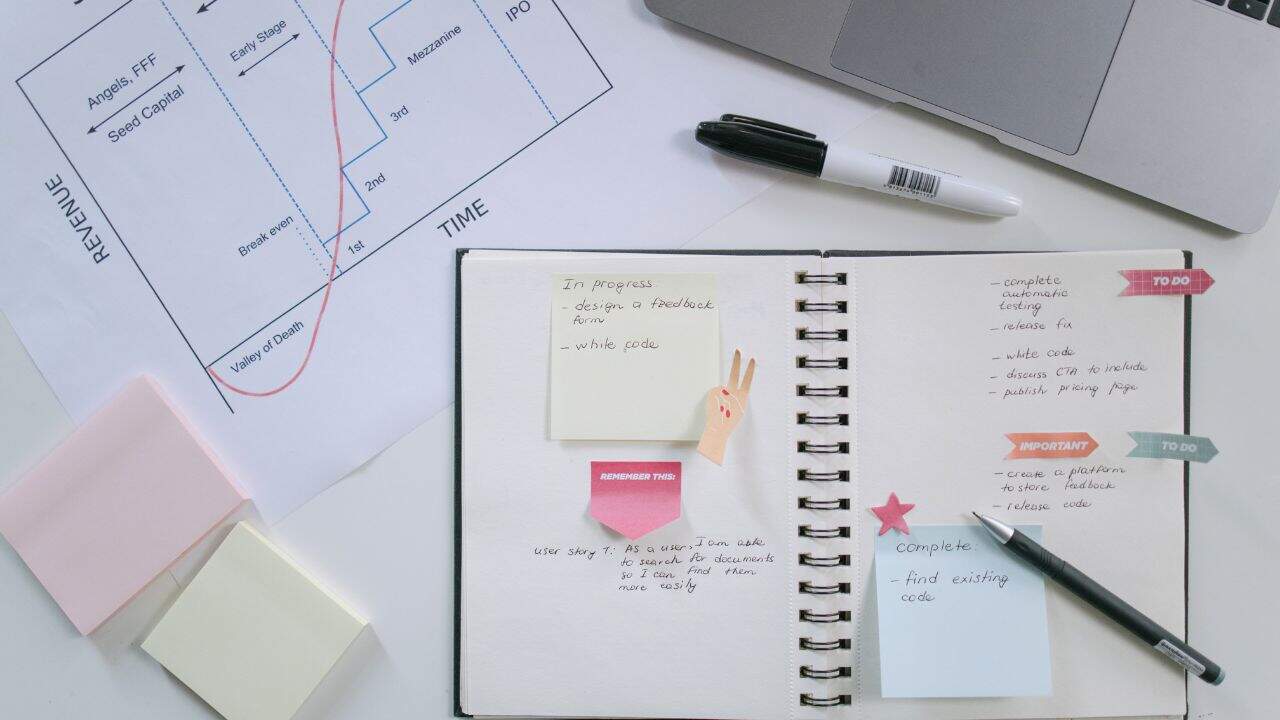 Angels, FFF
Seed Capital
Early Stage
Mezzanine
IPO
3rd
2nd
1st
Break even
Valley of Death
REVENUE
TIME
In progress:
- design a feedback
form
- while code
REMEMBER THIS:
user story 1: As a user, I am able
to search for documents
so I can find them
more easily
TO DO
- complete
automatic
testing
- release fix
- white code
- discuss CTA to include
- publish pricing page
IMPORTANT
TO DO
- create a platform
to store feedback
- release code
complete:
- find existing
code